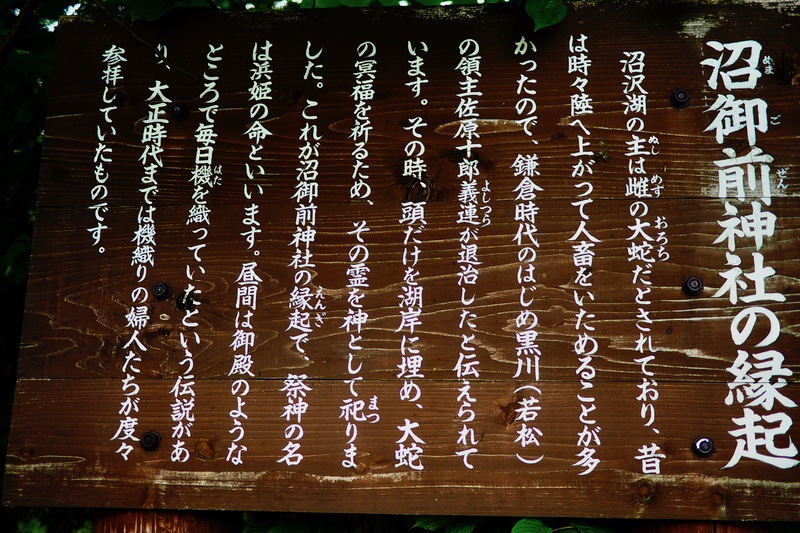 沼御前神社の縁起
沼沢湖の主は雌の大蛇だとされており、昔
は時々陸へ上がって人畜をいためることが多
かったので、鎌倉時代のはじめ黒川(若松)
の領主佐原十郎義連が退治したと伝えられて
います。その時、頭だけを湖岸に埋め、大蛇
の冥福を祈るため、その霊を神として祀りま
した。これが沼御前神社の縁起で、祭神の名
は浜姫の命といいます。昼間は御殿のような
ところで毎日機を織っていたという伝説があ
り、大正時代までは機織りの婦人たちが度々
参拝していたものです。